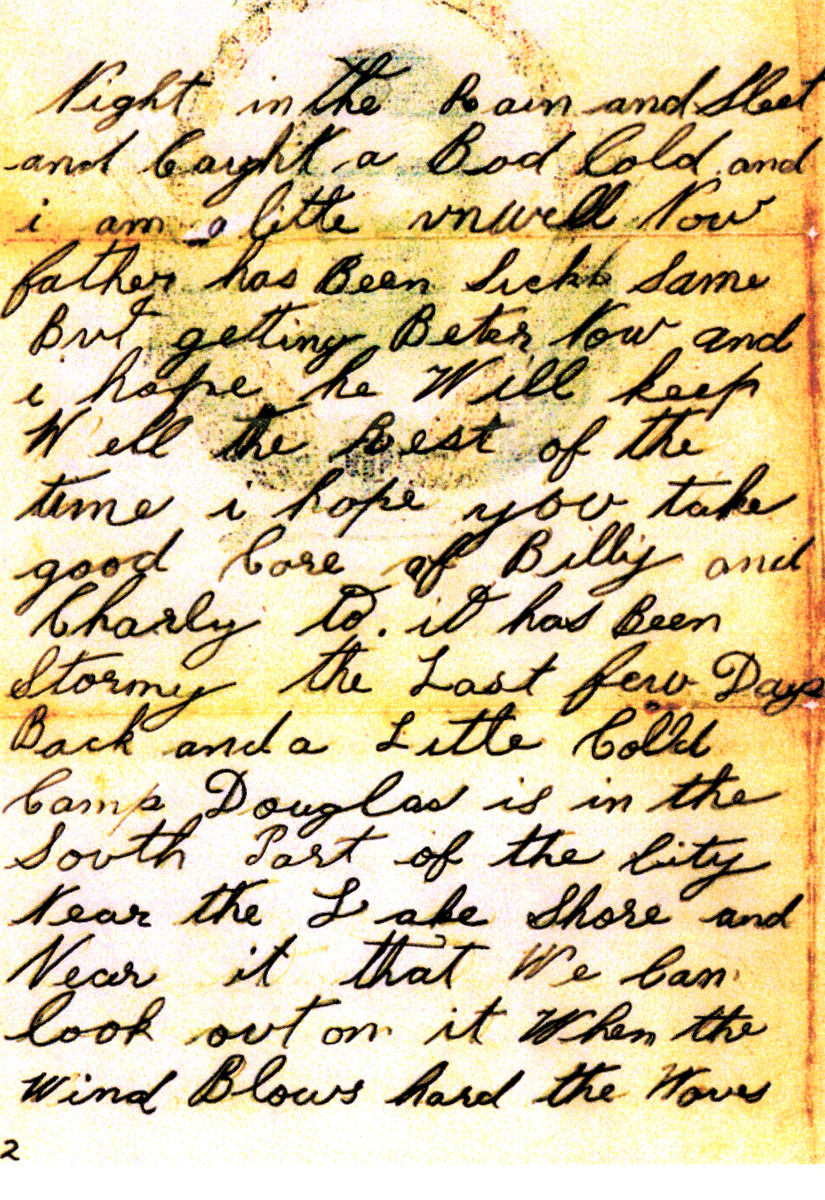 Night in the Rain and Sleet
and Caught a Bad Cold and
i am a litte unwell Now
father has Been Sick Same
But getting Beter Now and
i hope he Will keep
Well the Rest of the
time i hope you take
good Care of Billy and
Charly to. it has Been
Stormy the Last few Days
Back and a Little Cold
Camp Douglas is in the
South Part of the City
Near the Lake Shore and
Near it that We Can
look out on it When the
Wind Blows hard the Waves
2